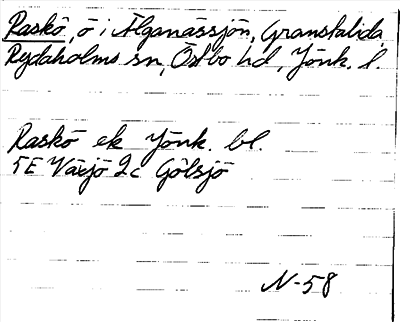 Raskö, ö i Älganässjön, Granstalida.
Rydaholms sn, Östbo hd, Jönk. l.
Raskö ek Jönk. bl.
5E Växjö 2c Gölsjö
N-58